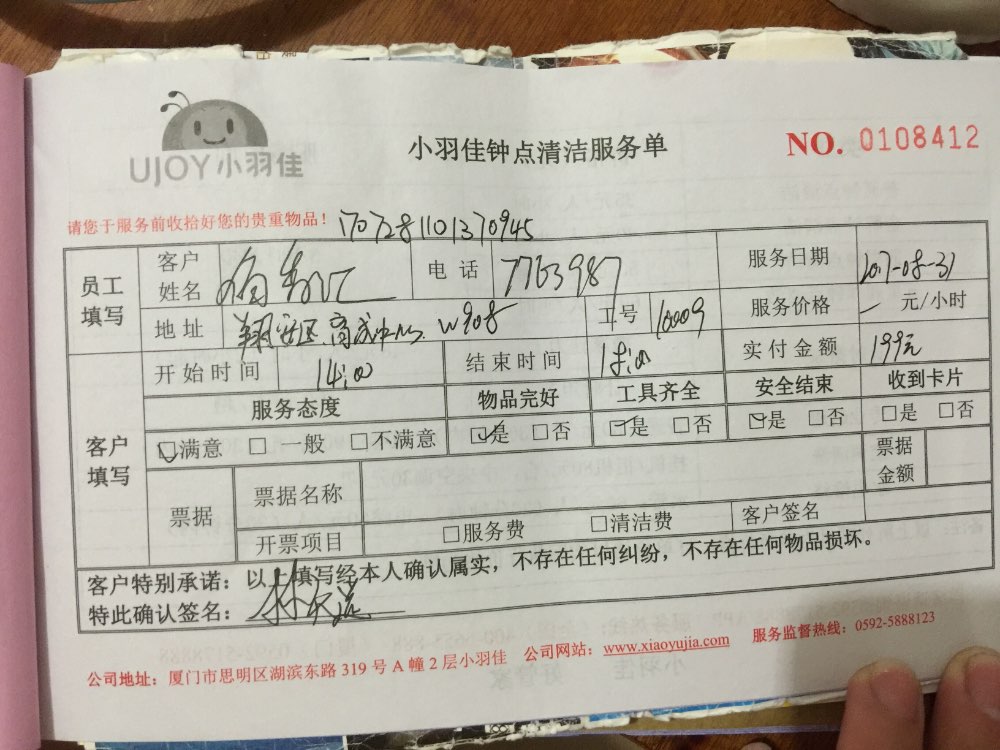 UJOY小羽佳
小羽佳钟点清洁服务单
NO. 0108412
请您于服务前收拾好您的贵重物品！ 1707281101370945
员工填写 客户姓名 电话 7763987 服务日期 2017-08-31
地址 翔安区 W908 工号 10009 服务价格 元/小时
客户填写 开始时间 14:00 结束时间 18:00 实付金额 199元
服务态度 物品完好 工具齐全 安全结束 收到卡片
☑满意 □一般 □不满意 ☑是 □否 ☑是 □否 ☑是 □否 □是 □否
票据 票据名称 票据金额
开票项目 □服务费 □清洁费 客户签名
客户特别承诺：以上填写经本人确认属实，不存在任何纠纷，不存在任何物品损坏。
特此确认签名：
公司地址：厦门市思明区湖滨东路319号A幢2层小羽佳 公司网站：www.xiaoyujia.com 服务监督热线：0592-5888123